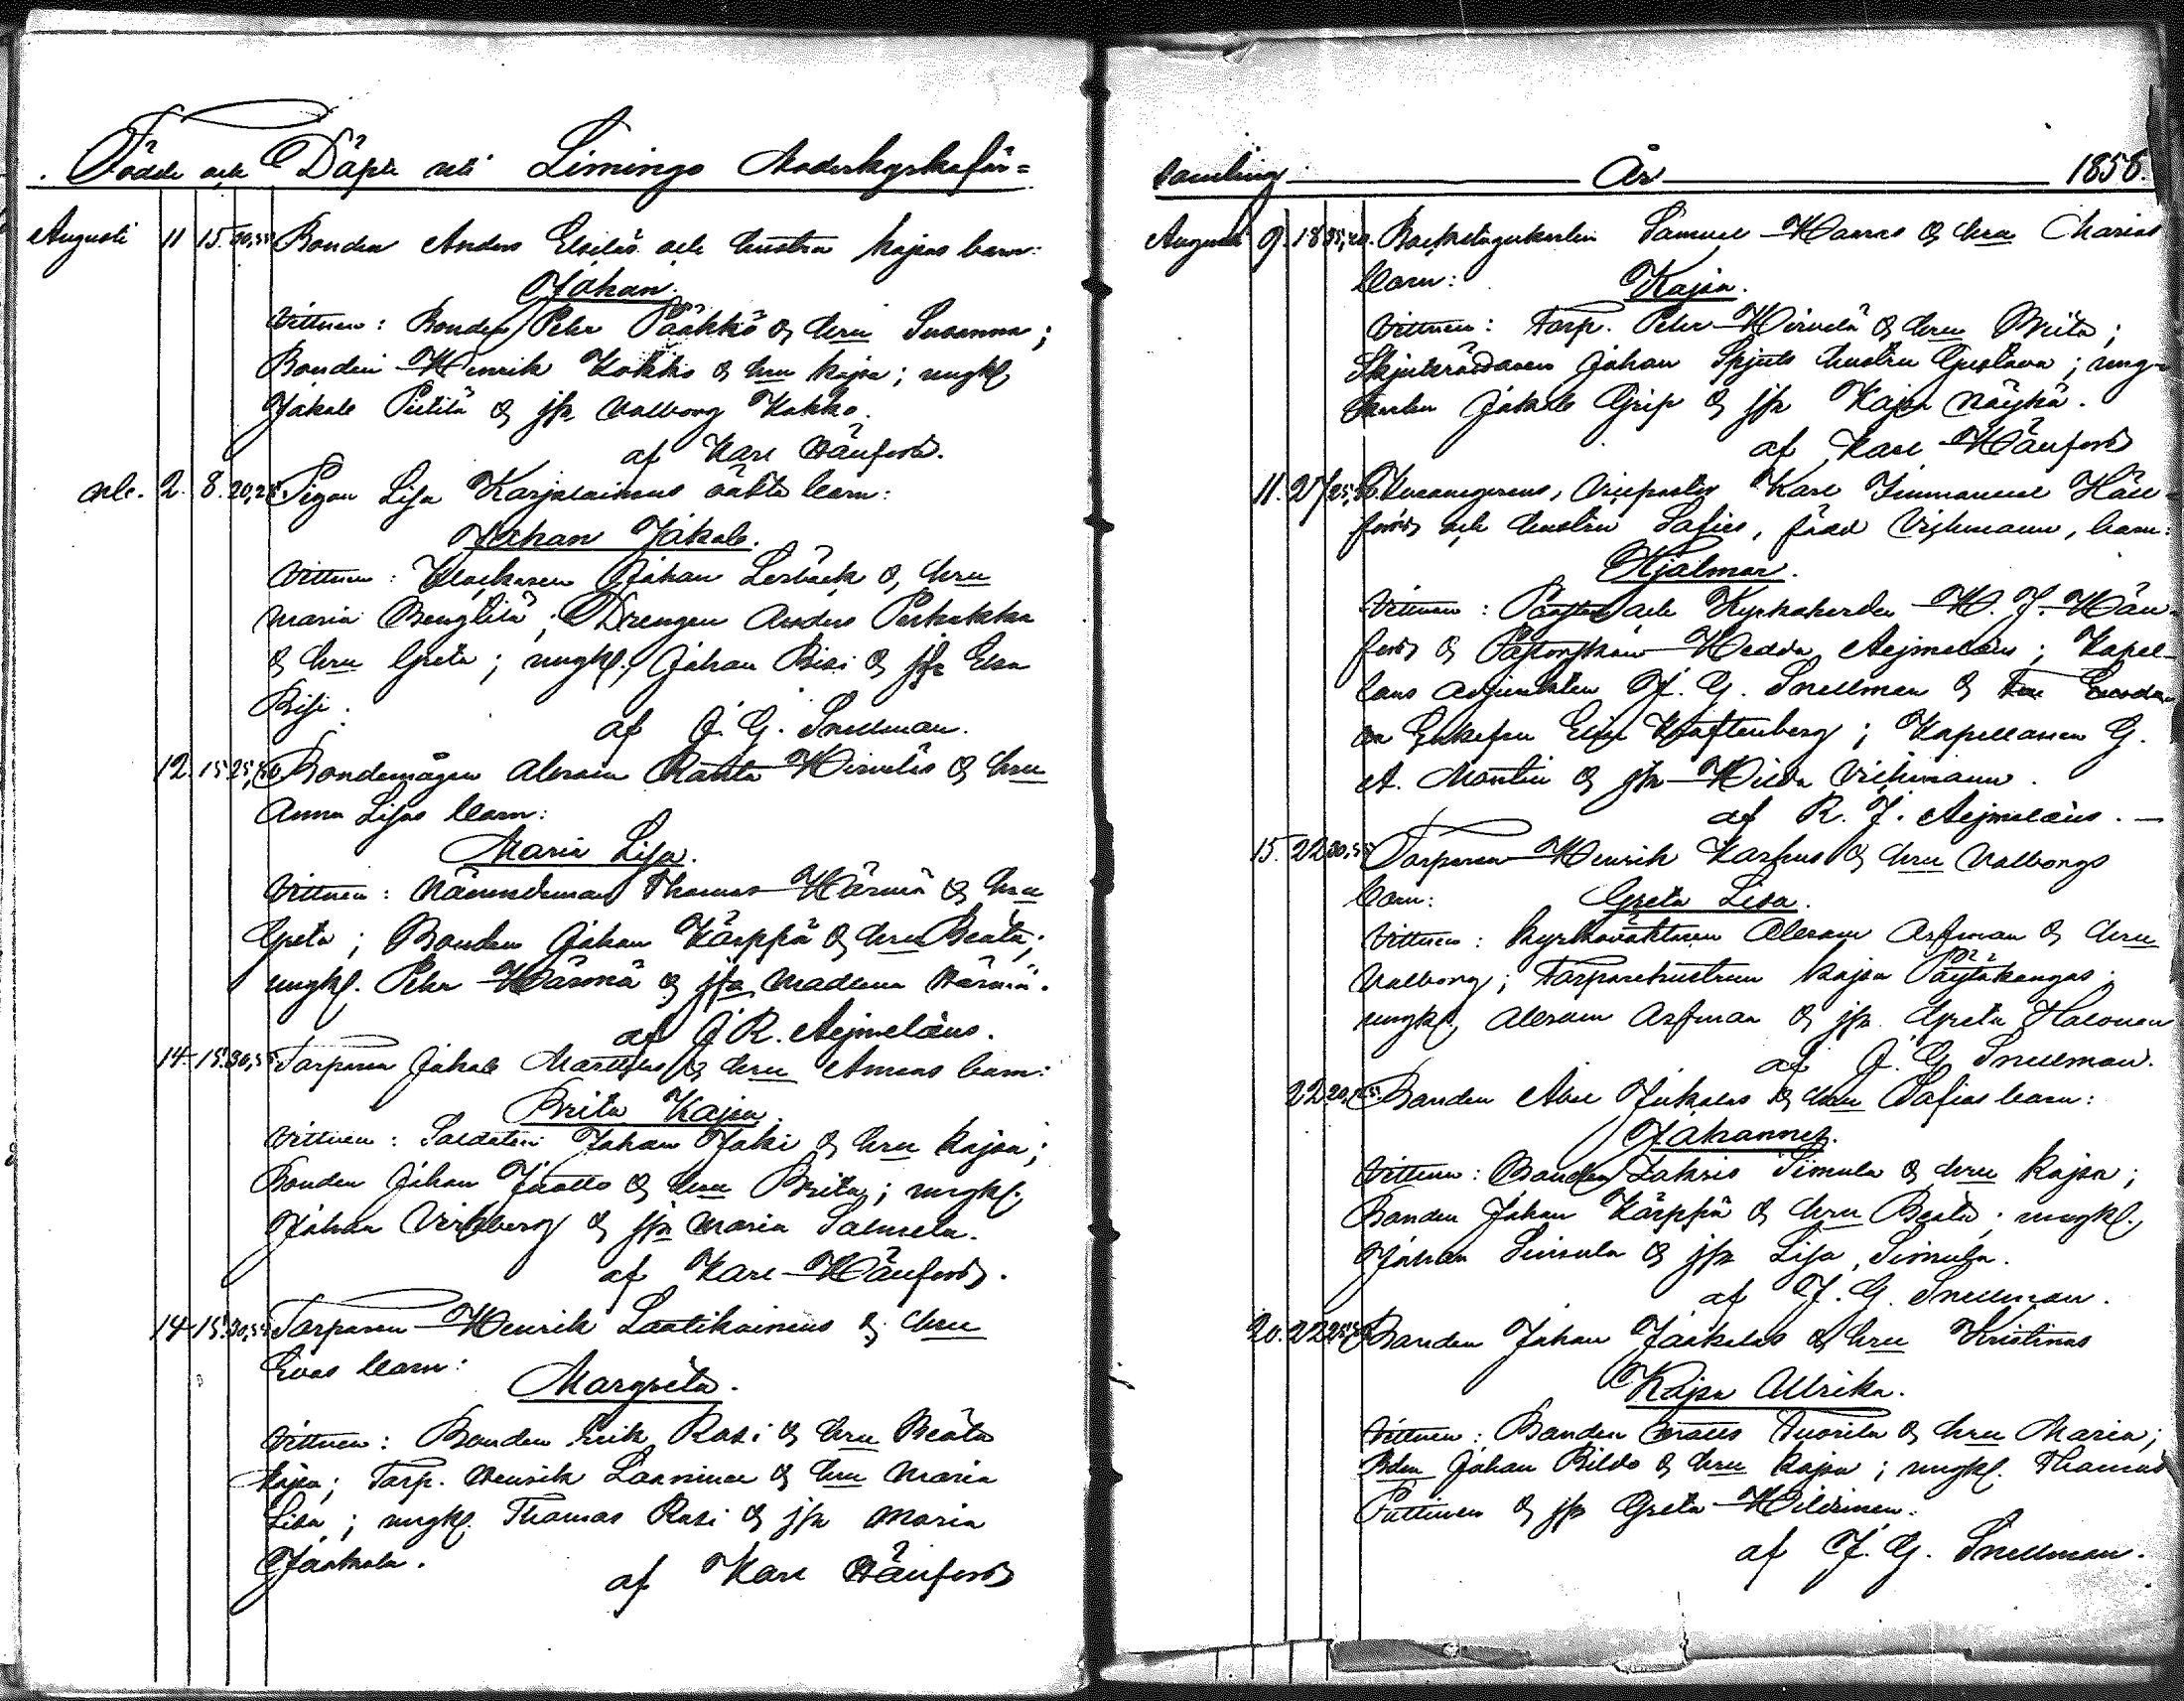 Födde och Döpte uti Limingo Moderkyrkoför=
Augusti 11 15. 30,35 Bonden Anders Elsiläs och hustru Kajsas barn:
Johan.
Vittnen: Bonden Pehr Pääkkö & hru Susanna;
Bonden Henrik Kokko & hru Kajsa; ungkl
Jakob Pietilä & jfr Valborg Kokko.
af Karl Hänfors.
2. 8. 20,25. Pigan Lisa Karjalainens oäkta barn:
Johan Jakob.
Vittnen: Klockaren Johan Lesbäck & hru
Maria Benglita; Drengen Anders
& hru Greta; ungkl. Johan Bisi & jfr Elsa
Bisi.
af J. G. Snellman.
12. 15. 25, Bondemågen Abram Hirveläs & hru
Anna Lisas barn:
Maria Lisa.
Vittnen: Nämndeman Thomas Härmä & hru
Greta; Bonden Johan Kärppä & hru Beata;
ungkl. Pehr Härmä & jfr Madlena Härmä.
af J R. Aejmelæus.
14. 15. 30,35. Torparen Jakob & hru Annas barn:
Brita Kajsa.
Vittnen: Soldaten Johan Joki & hru Kajsa;
Bonden Johan Juotto & hru Brita; ungkl.
Johan & jfr Maria Salmela.
af Karl Hänfors.
14 15. 30,35 Torparen Henrik Laatikainens & hru
Evas barn:
Margreta.
Vittnen: Bonden Erik Rasi & hru Beata
Kajsa; Torp. Henrik Laaninen & hru Maria
Lisa; ungkl. Thomas Rasi & jfr Maria
Jaakola.
af Karl Hänfors
samling År 1858.
Augusti 9. 18 35,40. Samuel Hannus & hru Marias
barn: Kajsa.
Vittnen: Torp. Pehr Hirvelä & hru Brita;
Johan Spjuts hustru Gustava; ung-
karlen Jakob Grip & jfr Kajsa Näykä.
af Karl Hänfors
11. 27 25,30. Vicepastor Karl Immanuel Hän-
fors och hustru Sofies, född Vichmann, barn:
Hjalmar.
Vittnen: Prosten och Kyrkoherden H. J. Hän-
fors & Pastorskan Hedda Aejmelæus; Kapel-
lans adjunkten J. G. Snellman &
Enkefru Elsa; Kapellanen G.
A. Montin & jfr Hilda Vichmann.
af R. J. Aejmelæus. —
15. 22 30,35 Torparen Henrik Karhus & hru Valborgs
barn: Greta Lisa.
Vittnen: Kyrkovaktaren Abram Asfman & hru
Valborg; Torparehustrun Kajsa Pöytäkangas;
ungkl. Abram Asfman & jfr Greta Halonen
af J. G. Snellman.
22. 20,25. Bonden Abel Jukolas & hru Sofias barn:
Johannes.
Vittnen: Bonden Zakris Simula & hru Kajsa;
Bonden Johan Kärppä & hru Beata; ungkl.
Johan Simula & jfr Lisa Simula.
af J. G. Snellman.
20. 22 Bonden Johan Jaakolas & hru Kristinas
Kajsa Ullrika.
Vittnen: Bonden Matts Tuorila & hru Maria;
Bden Johan Bildo & hru Kajsa; ungkl. Thomas
Puttinen & jfr Greta Hildinen.
af J. G. Snellman.